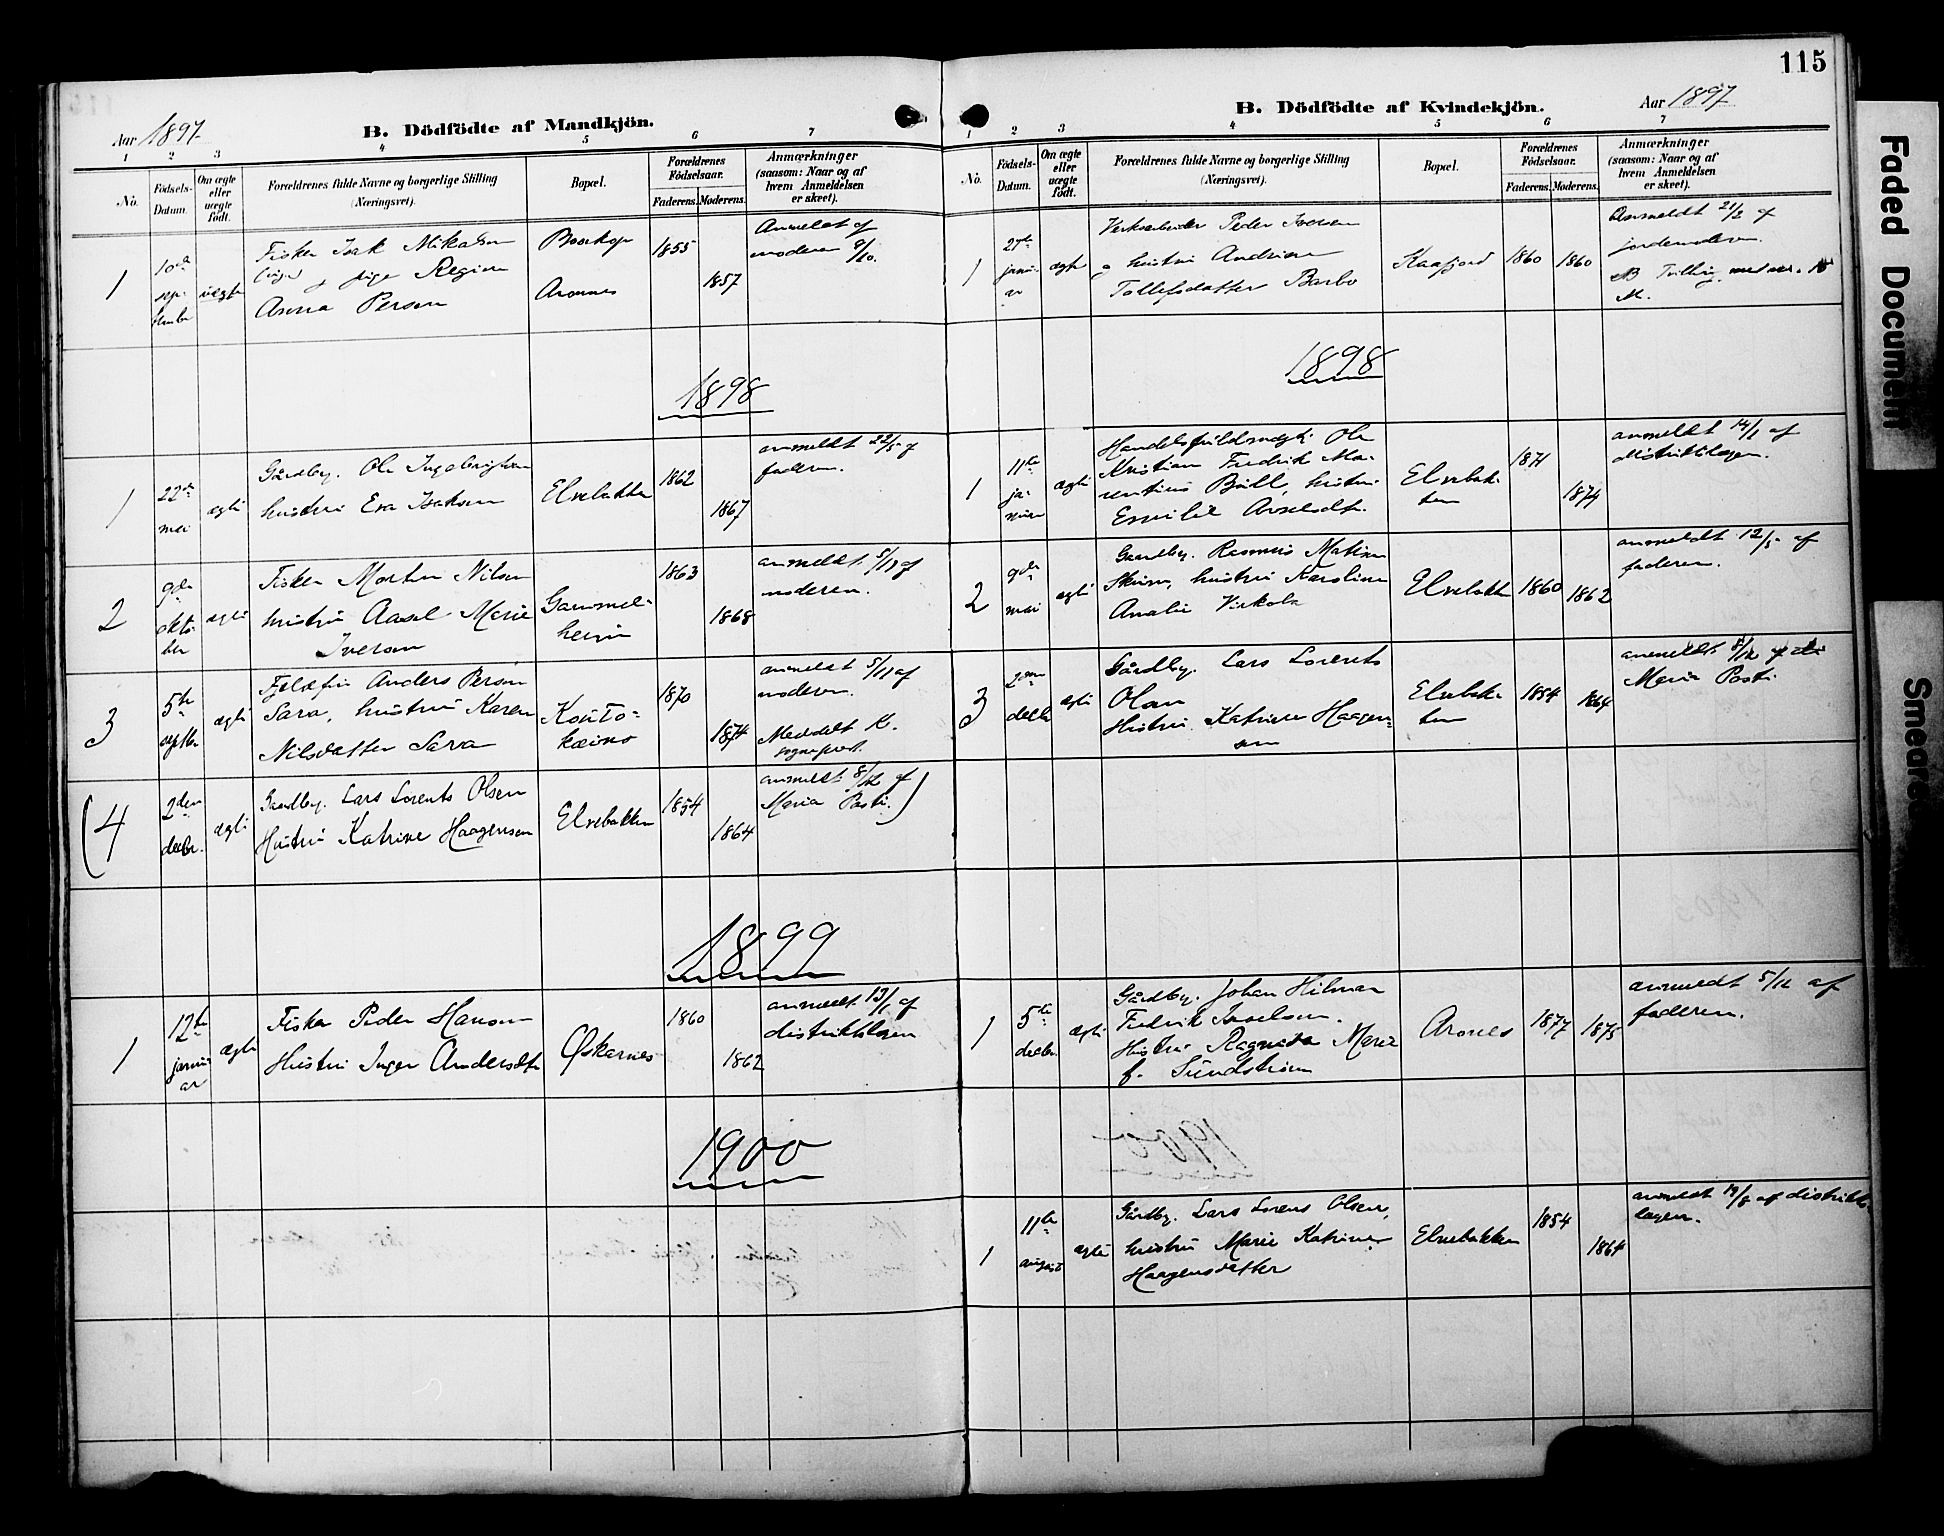 115
Aar 1897
B. Dödfödte af Mandkjön.
1 2 3 4 5 6 7
No.
Födsels-
Datum.
Om ægte
eller
uægte
födt.
Forældrenes fulde Navne og borgerlige Stilling
(Næringsvei).
Bopæl.
Forældrenes
Födselsaar.
Faderens. Moderens.
Anmærkninger
(saasom: Naar og af
hvem Anmeldelsen
er skeet).
1
10de
september
uægte
Fisker Isak Mikalsen
pige Regine
Anna Persen
Bosekop
Aronnes
1855
1857
Anmeldt af
moderen 9/10.
1898
1
22de
mai
ægte
Gårdbr. Ole Ingebrigtsen
hustru Eva Isaksen
Elvebakken
1862
1867
anmeldt 22/5 af
faderen.
2
9de
oktober
ægte
Fisker Morten Nilsen
hustru Aasel Marie
Iversen
Gammelheim
1863
1868
anmeldt af
moderen.
3
5te
septbr
ægte
Fjeldfin Anders Persen
Sara, hustru Karen
Nilsdatter Sara
Koutokæino
1870
1874
anmeldt 5/11 af
moderen.
Meddelt K.
sogneprest.
(4
2den
decbr.
ægte
Gaardbr. Lars Lorents Olsen
Hustru Katrine Haagensen
Elvebakken
1854
1864
anmeldt 8/12 af
Maria Posti.)
1899
1
12te
januar
ægte
Fisker Peder Hansen
Hustru Inger Andersdtr
Øskarnes
1860
1862
anmeldt 13/1 af
distriktslægen
1900
B. Dödfödte af Kvindekjön.
Aar 1897
1 2 3 4 5 6 7
No.
Födsels-
Datum.
Om ægte
eller
uægte
födt.
Forældrenes fulde Navne og borgerlige Stilling
(Næringsvei).
Bopæl.
Forældrenes
Födselsaar.
Faderens. Moderens.
Anmærkninger
(saasom: Naar og af
hvem Anmeldelsen
er skeet).
1
27de
januar
ægte
Verksarbeider Peder Iversen
og hustru Andrine
Tollefsdatter Barbo
Kaafjord
1860
1860
Anmeldt 21/2 af
jordemoderen.
NB Tvilling med
1898
1
11te
januar
ægte
Handelsfuldmægt. Ole
Kristian Fredrik Maurentius
Büll, hustru
Emilie Axelsdtr.
Elvebakken
1871
1874
anmeldt 14/1 af
distriktslægen.
2
9de
mai
ægte
Gaardbr. Rasmus Matisen
hustru Karoline
Amalie Virkola
Elvebakken
1860
1862
anmeldt 12/5 af
faderen.
3
2den
decbr
ægte
Gårdbr. Lars Lorents
Olsen
Hustru Katrine Haagensen
Elvebakken
1854
1864
anmeldt 8/12 af
Maria Posti
1
5te
decbr.
ægte
Gårdbr. Johan Hilmar
Fredrik Iselsen.
Hustru Ragnida Marie
f. Sundstrøm
Aronnes
1877
1875
anmeldt 5/12 af
faderen.
1900
1
11te
august
ægte
Gårdbr. Lars Lorens Olsen,
hustru Marie Katrine
Haagensdatter
Elvebakken
1854
1864
anmeldt 13/8 af distriktslægen.
Faded Document
Smeared